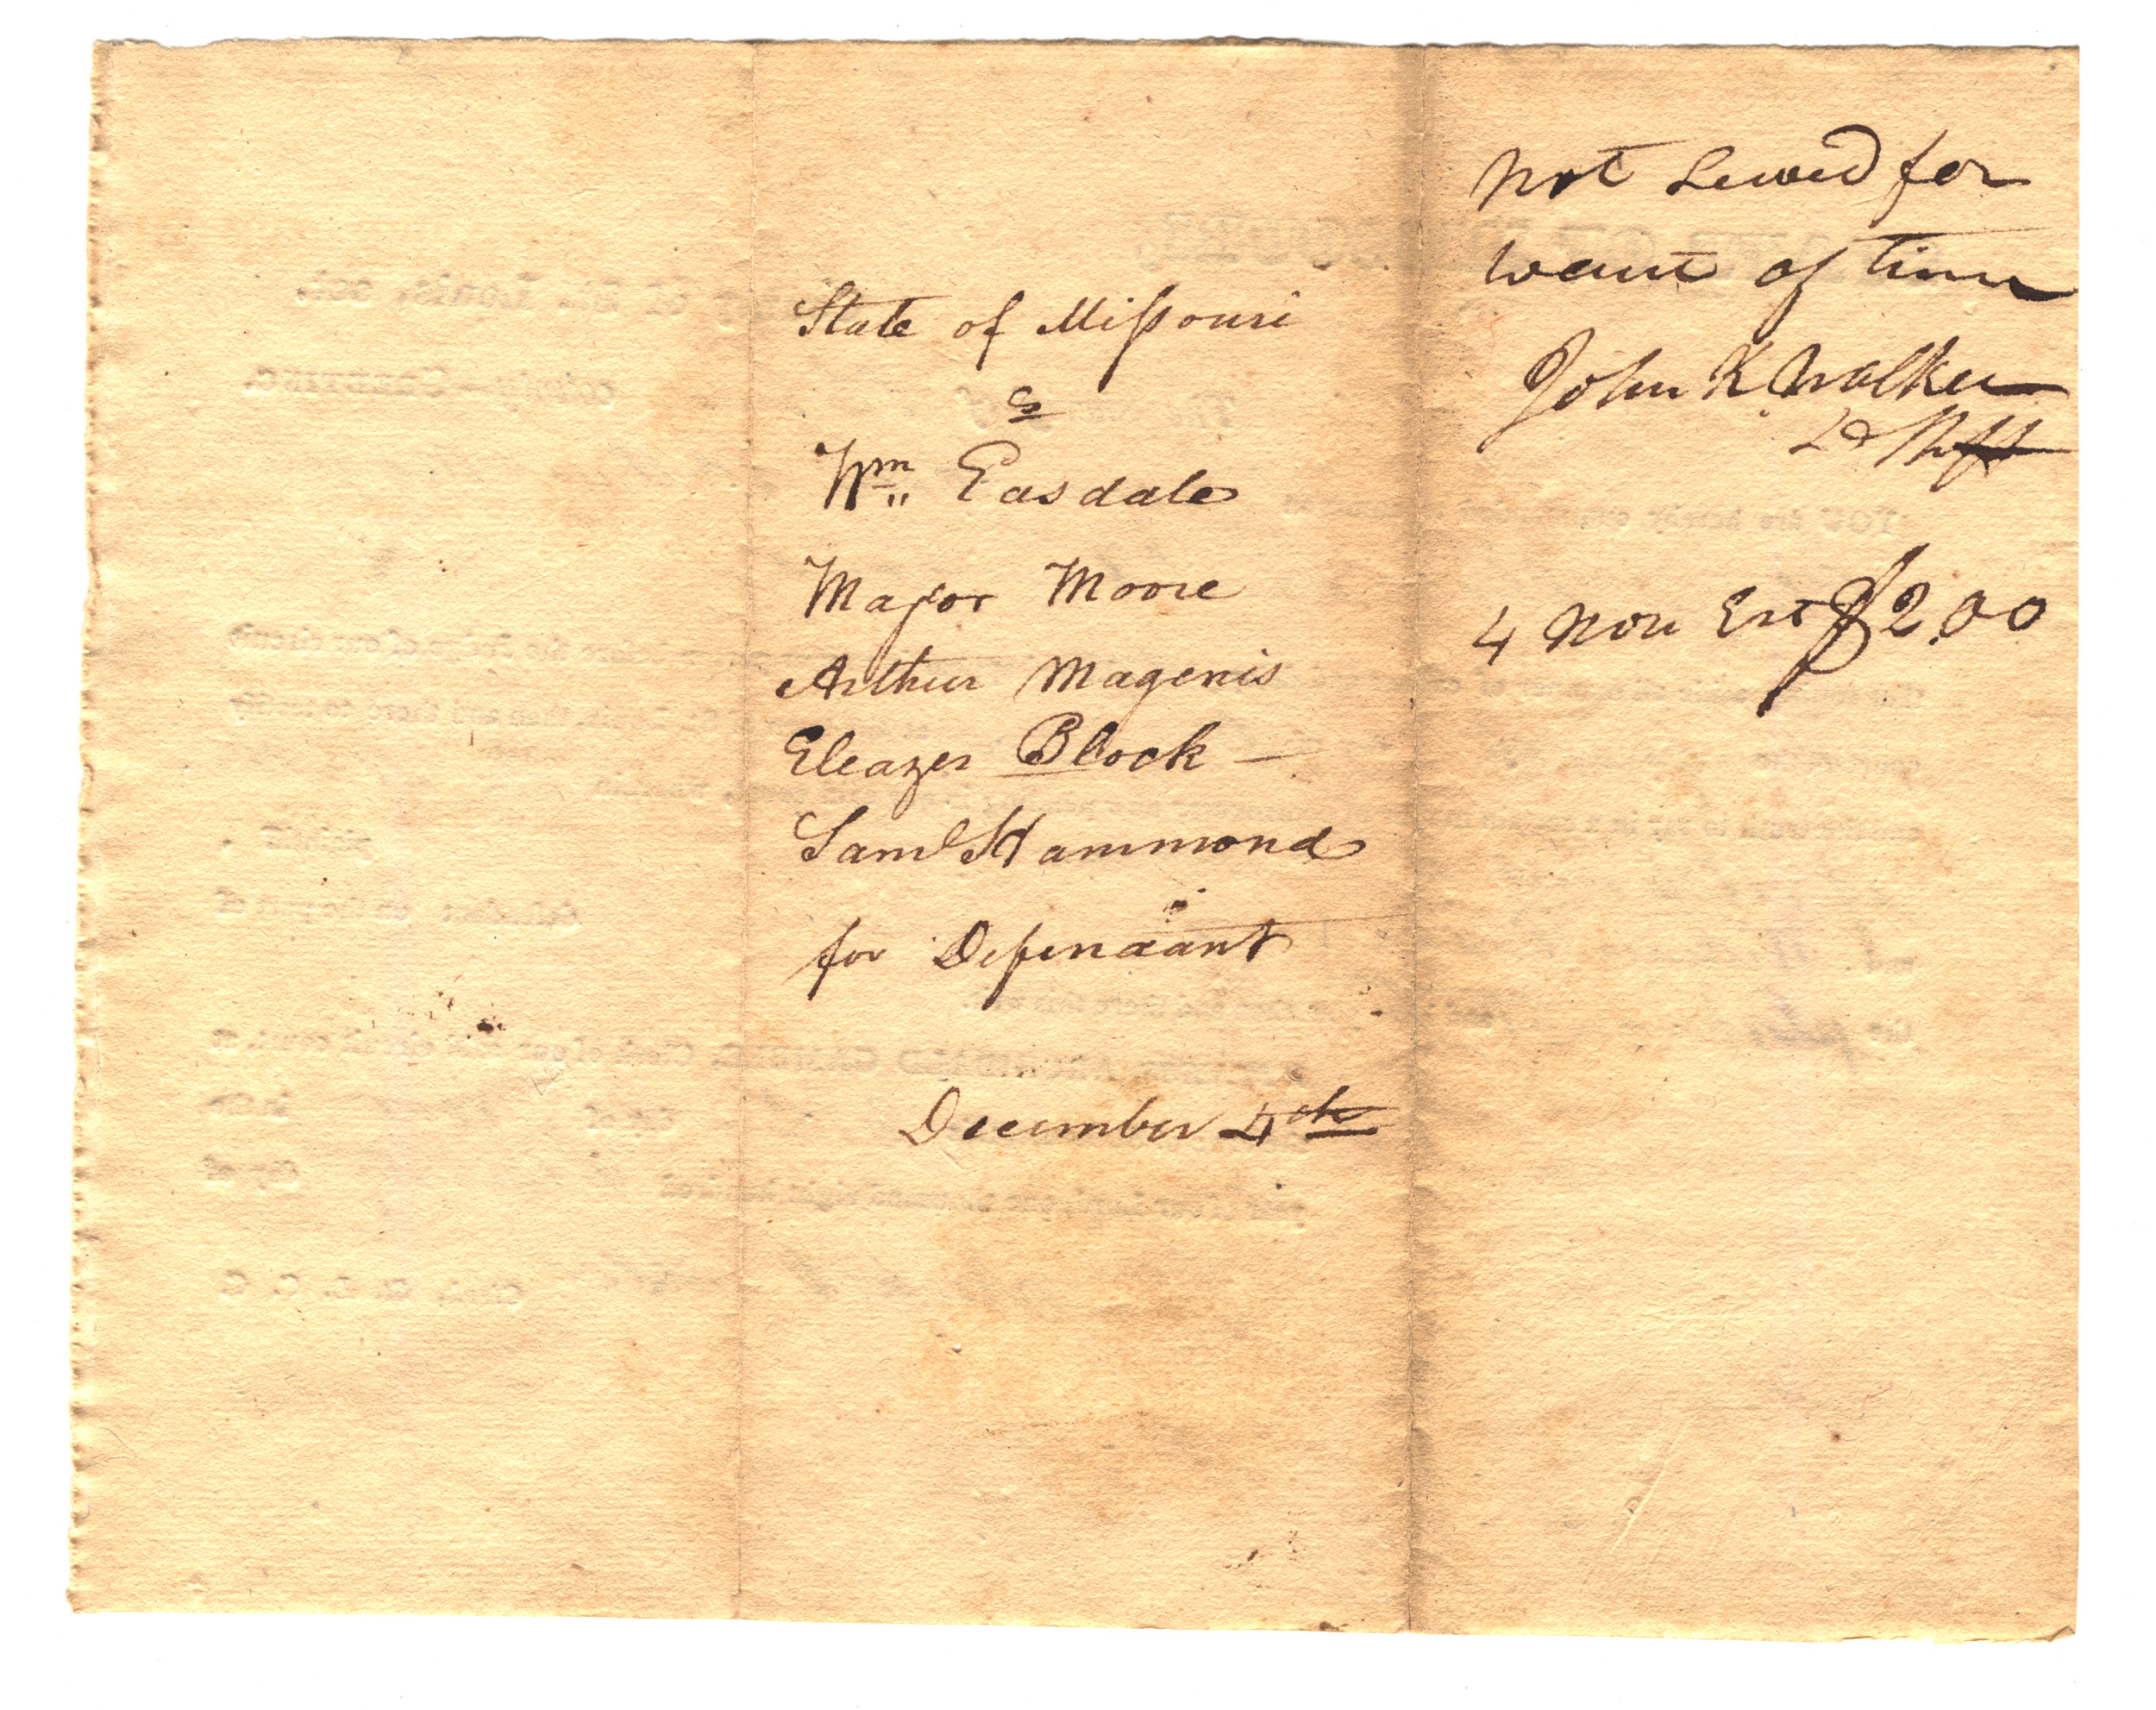 State of Missouri
vs
Wm Easdale
Major Moore
Arthur Magenis
Eleazer Block —
Saml Hammond
for Defendant
December 4th
Not Served for
want of time
John K Walker
D Shff
4 Non Est $2.00